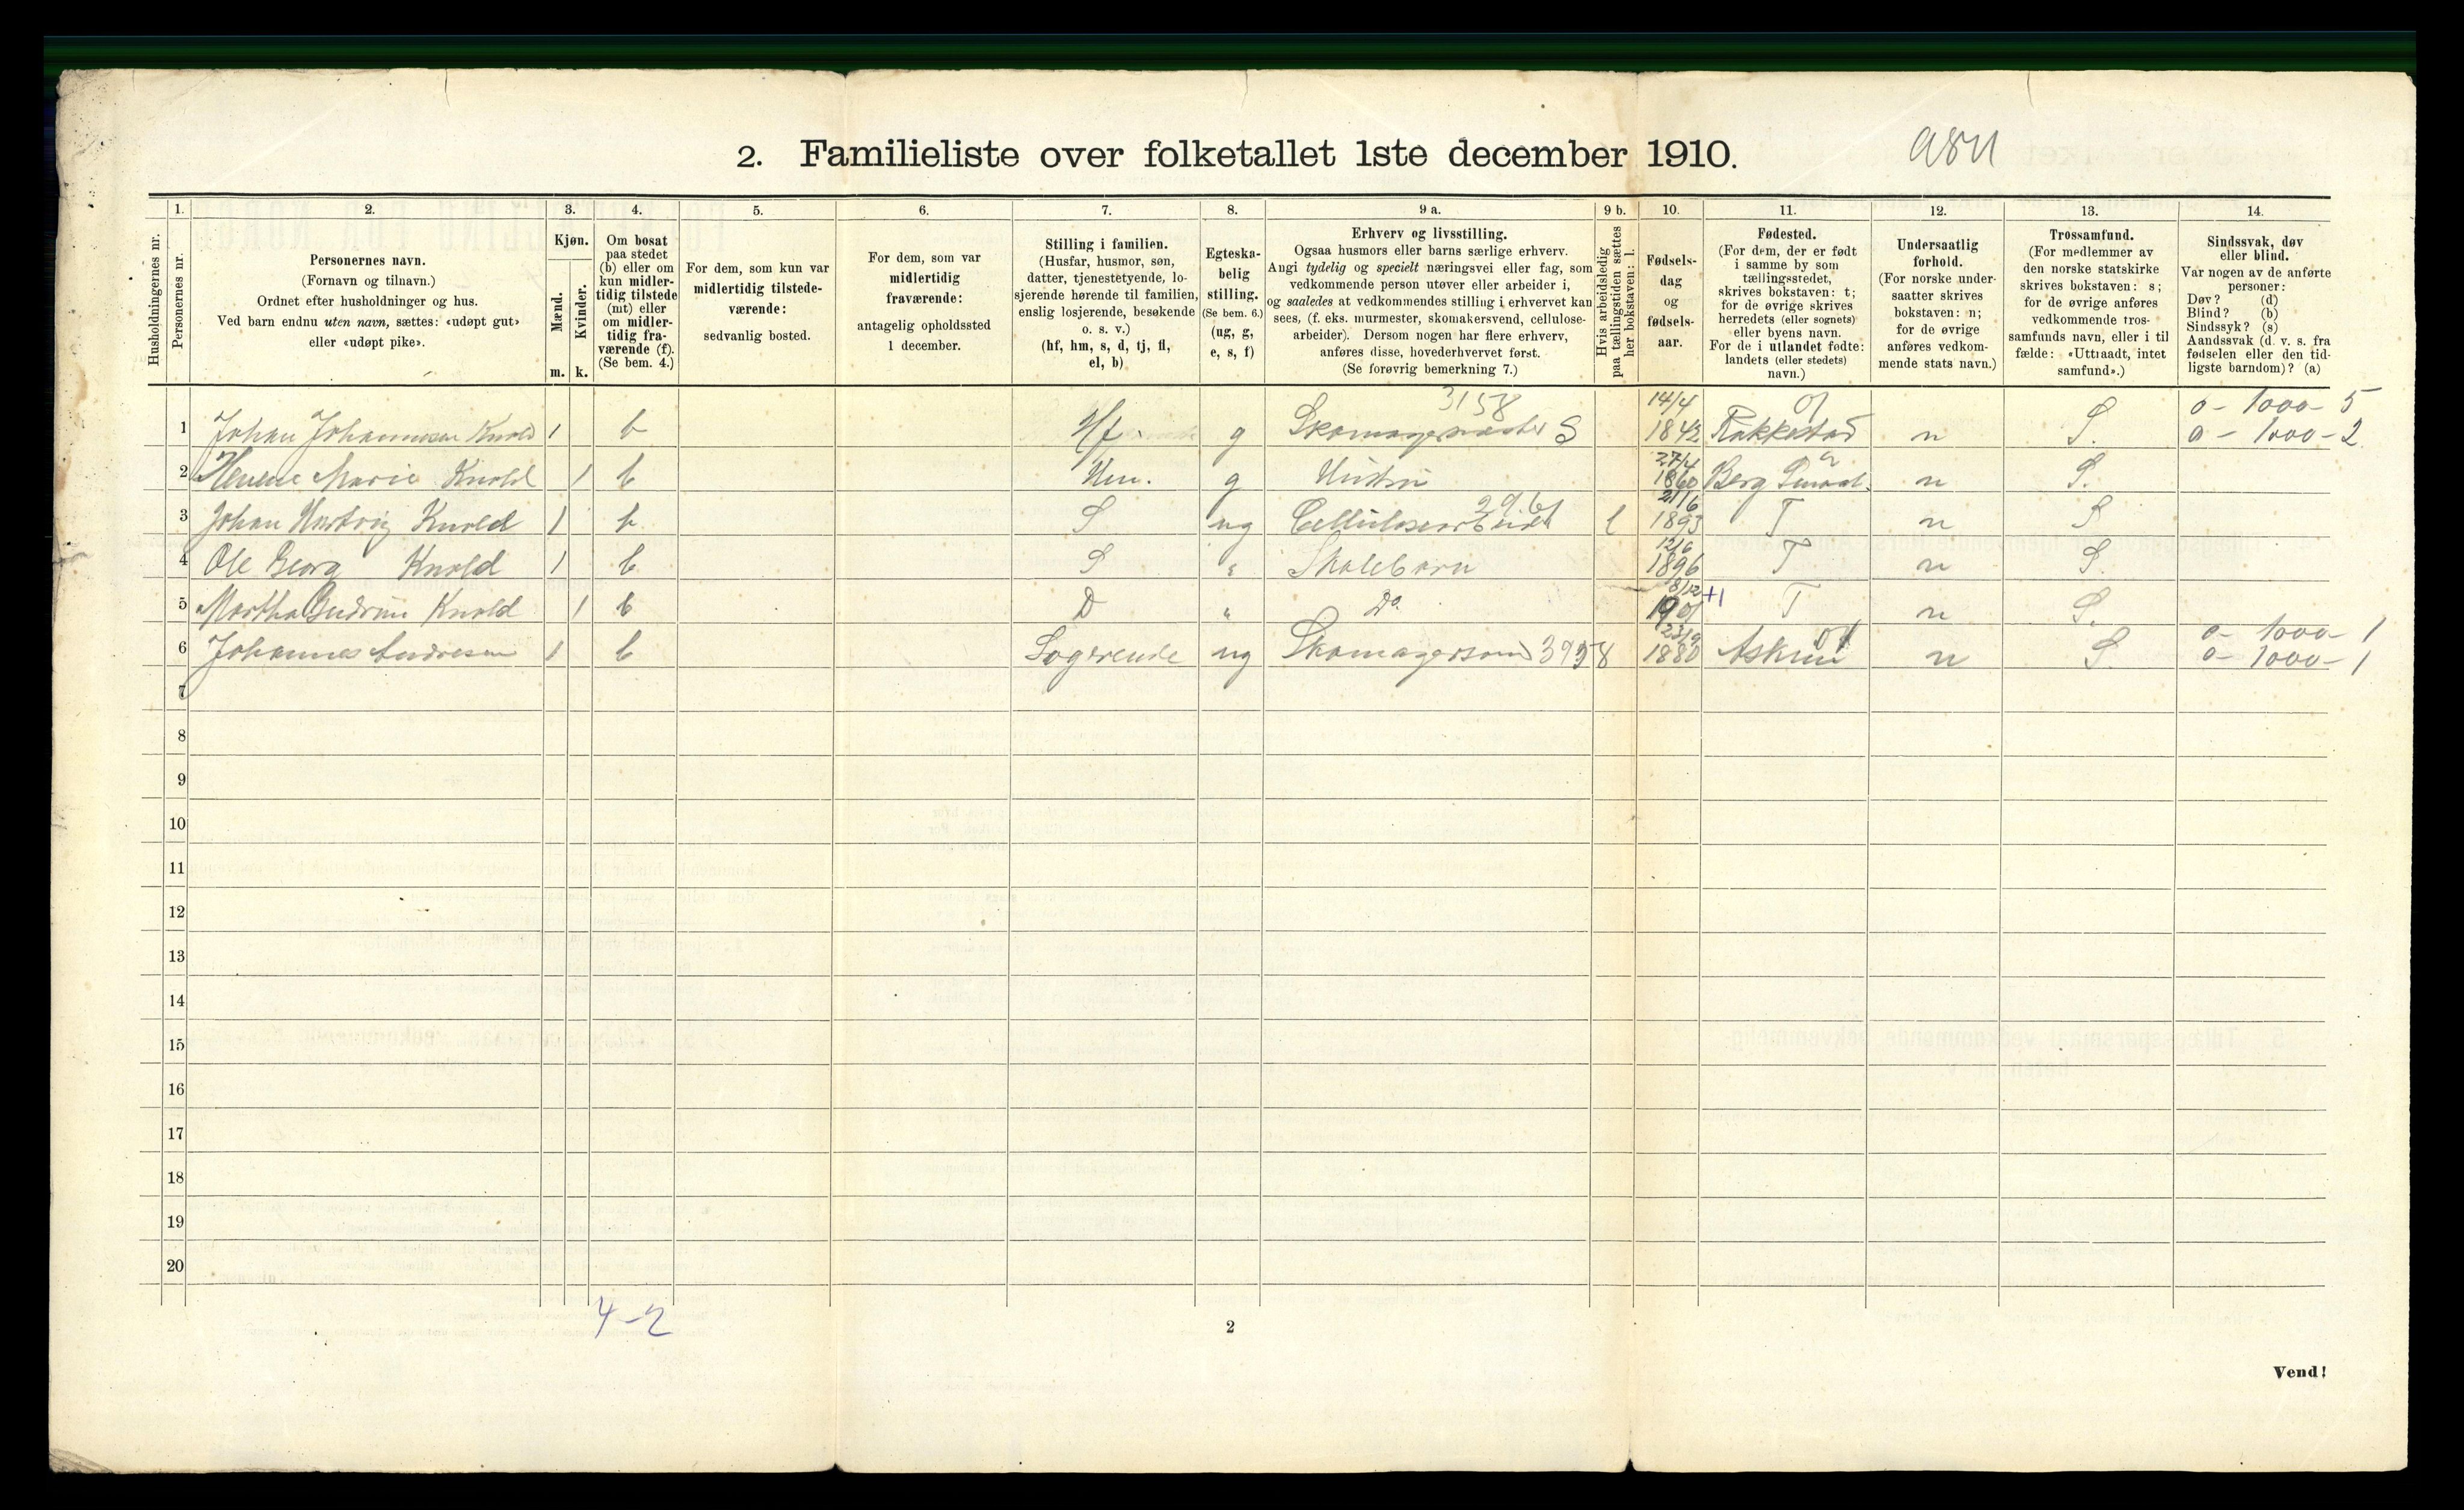 2. Familieliste over folketallet 1ste december 1910.
1. 2. 3. 4. 5. 6. 7. 8. 9 a. 9 b. 10. 11. 12. 13. 14.
Husholdningernes nr.
Personernes nr.
Personernes navn.
(Fornavn og tilnavn.)
Ordnet efter husholdninger og hus.
Ved barn endnu uten navn, sættes: «udøpt gut»
eller «udøpt pike».
Kjøn.
Mænd.
Kvinder.
m. k.
Om bosat
paa stedet
(b) eller om
kun midler-
tidig tilstede
(mt) eller
om midler-
tidig fra-
værende (f).
(Se bem. 4.)
For dem, som kun var
midlertidig tilstede-
værende:
sedvanlig bosted.
For dem, som var
midlertidig
fraværende:
antagelig opholdssted
1 december.
Stilling i familien.
(Husfar, husmor, søn,
datter, tjenestetyende, lo-
sjerende hørende til familien,
enslig losjerende, besøkende
o. s. v.)
(hf, hm, s, d, tj, fl,
el, b)
Egteska-
belig
stilling.
(Se bem. 6.)
(ug, g,
e, s, f)
Erhverv og livsstilling.
Ogsaa husmors eller barns særlige erhverv.
Angi tydelig og specielt næringsvei eller fag, som
vedkommende person utøver eller arbeider i,
og saaledes at vedkommendes stilling i erhvervet kan
sees, (f. eks. murmester, skomakersvend, cellulose-
arbeider). Dersom nogen har flere erhverv,
anføres disse, hovederhvervet først.
(Se forøvrig bemerkning 7.)
Hvis arbeidsledig
paa tællingstiden sættes
her bokstaven: l.
Fødsels-
dag
og
fødsels-
aar.
Fødested.
(For dem, der er født
i samme by som
tællingsstedet,
skrives bokstaven: t;
for de øvrige skrives
herredets (eller sognets)
eller byens navn.
For de i utlandet fødte:
landets (eller stedets)
navn.)
Undersaatlig
forhold.
(For norske under-
saatter skrives
bokstaven: n;
for de øvrige
anføres vedkom-
mende stats navn.)
Trossamfund.
(For medlemmer av
den norske statskirke
skrives bokstaven: s;
for de øvrige anføres
vedkommende tros-
samfunds navn, eller i til
fælde: «Uttraadt, intet
samfund».)
Sindssvak, døv
eller blind.
Var nogen av de anførte
personer:
Døv? (d)
Blind? (b)
Sindssyk? (s)
Aandssvak (d. v. s. fra
fødselen eller den tid-
ligste barndom)? (a)
3158 14/4 0 - 1000 - 5
1 Johan Johannesen Knold 1 b Hf g Skomagermester S 1842 Rakkestad n S. 0 - 1000 - 2
27/4
2 Marie Knold 1 b Hm. g Hustru 1860 Berg n S.
21/6
3 Johan Hartvig Knold 1 b S ug l 1893 T n S
12/6
4 Ole Georg Knold 1 b S " Skolebarn 1896 T n S.
8/12 +1
5 Martha Gudrun Knold 1 b D " Do 1901 T n S.
23/9 0 - 1000 - 1
6 Johannes Andresen 1 b Logerende ug 1880 Askim n S 0 - 1000 - 1
7
8
9
10
11
12
13
14
15
16
17
18
19
20
4-2
2
Vend!